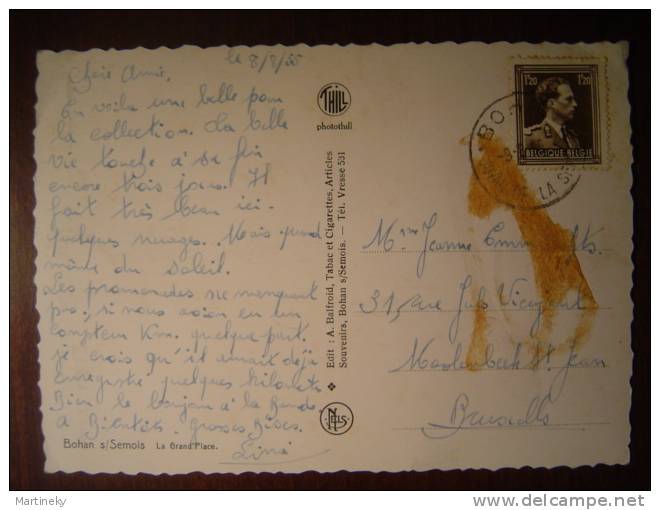 le 8/8/55
Chère Annie,
En voila une belle pour
la collection. La belle
vie touche à sa fin
encore trois jours. Il
fait très beau ici.
quelques nuages. Mais quand
même du soleil.
Les promenades ne manquent
pas, si nous avions eu un
compteur Km. quelque part
je crois qu'il aurait déjà
enregistré quelques kilomètr
Bien le bonjour à la bande
à Bientôt. Grosses Bises.
Bohan s/Semois La Grand'Place.
THILL
photothill
Edit : A. Balfroid, Tabac et Cigarettes, Articles
Souvenirs, Bohan s/Semois. — Tél. Vresse 531
NELS
1F20 1F20
BELGIQUE-BELGIE
BO
LA S
Mme Jeanne
31, rue Jules Vieujant
Moolenbeek St. Jean
Bruxelles
Martineky
http://www.delcampe.net